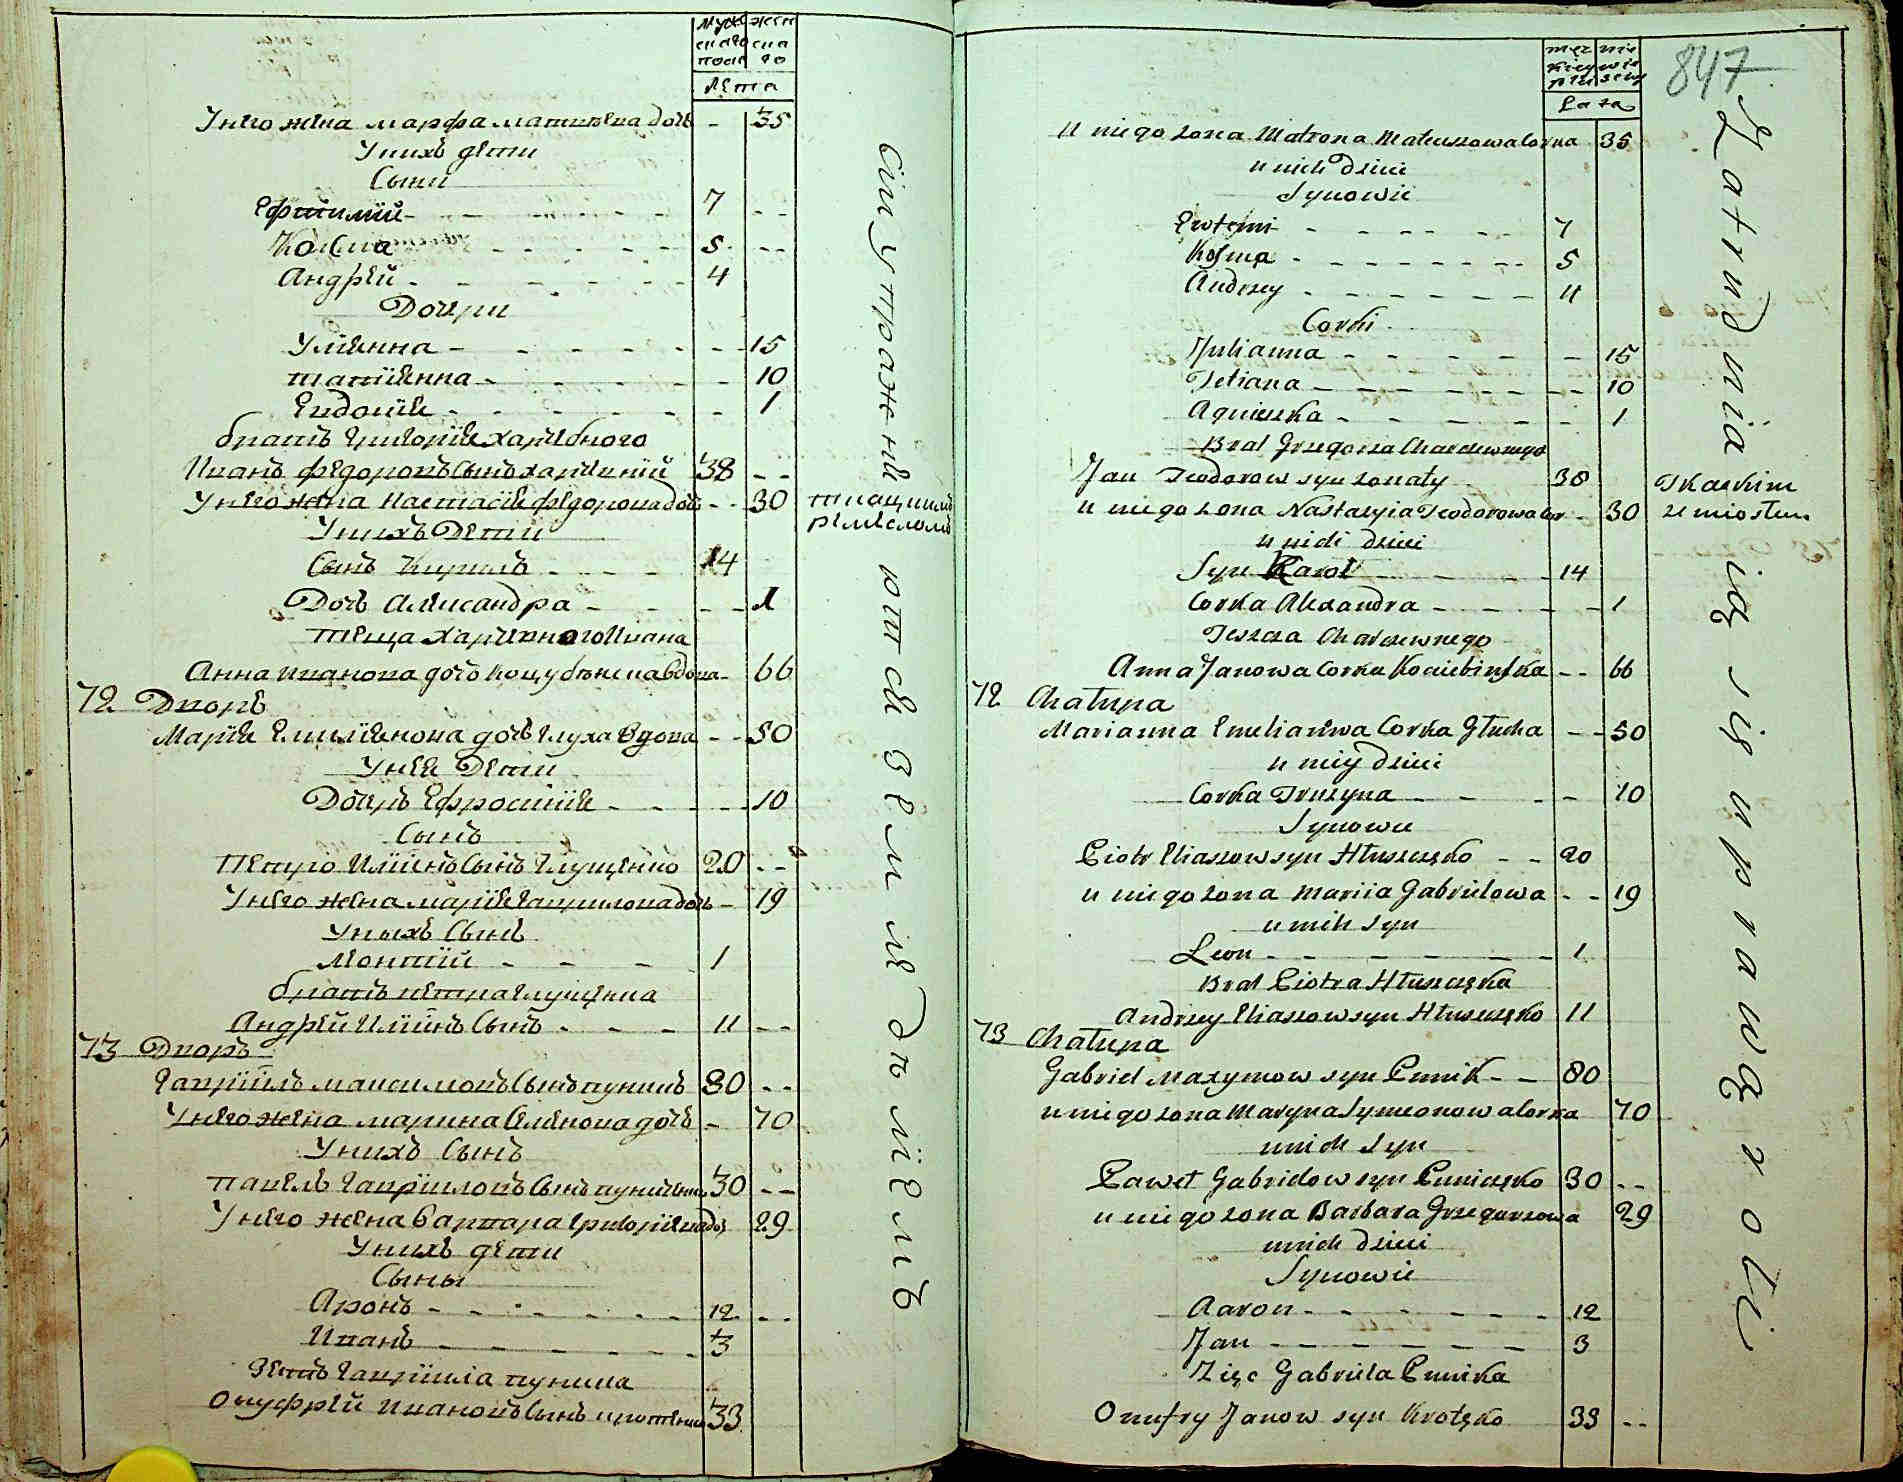 Мужескаго пола
женскаго
лета
Унего жена марфа матвѣева дочь - 35
Унихъ дети
Сыни
Ефтимій - 7 --
Косма - 5 --
Андрѣй - 4
Дочери
Улияна - 15
татіяна - 10
Евдокія - 1
братъ Григорія харчевного
Иванъ федоровъ сынъ харчевній 38 --
Унего жена настасія федорова дочь -- 30
ткацкимъ ремесломъ
Унихъ Дети
Сынъ кирилъ - 14
Дочь александра - 1
теща харчевного Ивана
Анна иванова дочь коцубѣнска вдова - 66
72 Дворъ
Марія Емиліянова дочь глуха вдова -- 50
Унея Дети
Дочерь Ефросинія - 10
Сынъ
Петро Иліинъ сынъ глущенко 20 --
Унего жена марія гаврилова дочь - 19
Уныхъ Сынъ
Леонтій - 1
братъ петра глущенка
Андрѣй Иліинъ Сынъ - 11 --
73 Дворъ
Гавріилъ максимовъ сынъ пуникъ 80 --
Унего жена марина Семенова дочь - 70
Унихъ Сынъ
павелъ гавриловъ сынъ пуниченко 30 --
Унего жена варвара григоріева дочь 29
Унихъ дети
Сыны
Аронъ - 12 --
Иванъ - 3
Зять гавріила пуника
Онуфрѣй ивановъ сынъ кротенко 33
сіи упражняются земледѣліемъ
847
męzkiey plci
niewiesciey
Lata
u niego zona Matrona Mateuszowa Corka 35
u nich Dzieci
Synowie
Ewtemi - 7
Kosma - 5
Andrzey - 4
Corki
Julianna - 15
Tetiana - 10
Agnieszka - 1
Brat Grzegorza Charczewnego
Jan Teodorow syn zonaty 38
Tkackim
u niego zona Nastazyia Teodorowa Cor - 30
rzemiosłem
u nich dzieci
Syn Karol - 14
Corka Alexandra - 1
Teszcza Charczewnego
Anna Janowa Corka Kociubinska -- 66
72 Chałupa
Marianna Emelianowa Corka Głucha -- 50
u niey dzieci
Corka Pruzyna - 10
Synowie
Piotr Eliaszow syn Hłuszczęko -- 20
u niego zona Mariia Gabrielowa -- 19
u nich syn
Leon - 1
Brat Piotra Hłuszczęka
Andrzey Eliaszow syn Hłuszczęko 11
73 Chałupa
Gabriel Maxymow syn Punik -- 80
u niego zona Maryna Symeonowa Corka 70
u nich Syn
Paweł Gabrielow syn Puniczęko 30 --
u niego zona Barbara Grzegorzowa 29
u nich dzieci
Synowie
Aaron - 12
Jan - 3
Zięc Gabriela Punika
Onufry Janow syn Krotęko 33 --
Zatrudniaią się uprawą roli